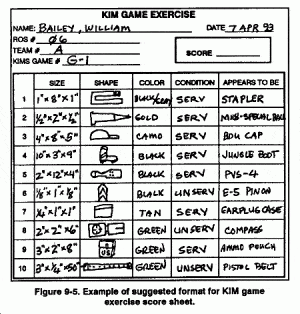 KIM GAME EXERCISE
NAME: BAILEY, WILLIAM DATE 7 APR 93
ROS # Ø6
TEAM # A
KIMS GAME # G-1 SCORE
SIZE SHAPE COLOR CONDITION APPEARS TO BE
1 1"x8"x1" BLACK/ SERV STAPLER
2 ½"x2"x½" GOLD SERV MINI-SPECIAL
3 4"x8"x5" CAMO SERV BDU CAP
4 10"x3"x9" BLACK SERV JUNGLE BOOT
5 2"x12"x4" BLACK SERV PVS-4
6 BLACK UNSERV E-5 PIN ON
7 ¼"x1"x1" TAN SERV EARPLUG CASE
8 2"x2"x6" GREEN UNSERV COMPASS
9 3"x2"x8" US GREEN SERV AMMO POUCH
10 3"x¼"x50" GREEN UNSERV PISTOL BELT
Figure 9-5. Example of suggested format for KIM game
exercise score sheet.